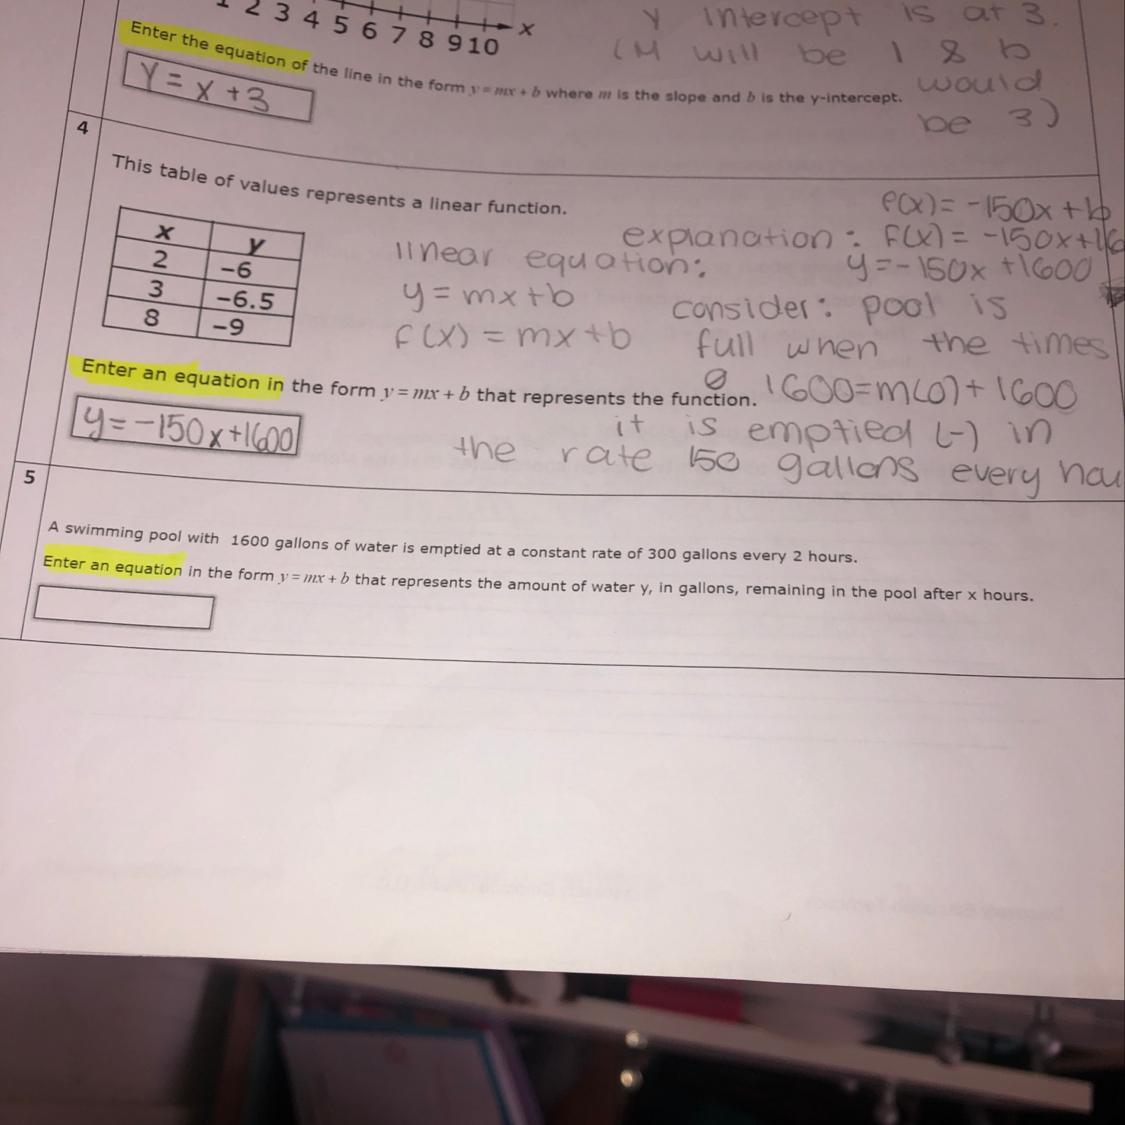 1 2 3 4 5 6 7 8 9 10 x
Y intercept is at 3.
(M will be 1 & b
would
be 3)
Enter the equation of the line in the form y = mx + b where m is the slope and b is the y-intercept.
Y = x + 3
4
This table of values represents a linear function.
x y
2 -6
3 -6.5
8 -9
linear equation:
y = mx + b
f(x) = mx + b
f(x) = -150x + b
explanation: f(x) = -150x + 16
y = -150x + 1600
consider: pool is
full when the times
0 1600 = m(0) + 1600
it is emptied (-) in
the rate 150 gallons every hou
Enter an equation in the form y = mx + b that represents the function.
y = -150x + 1600
5
A swimming pool with 1600 gallons of water is emptied at a constant rate of 300 gallons every 2 hours.
Enter an equation in the form y = mx + b that represents the amount of water y, in gallons, remaining in the pool after x hours.